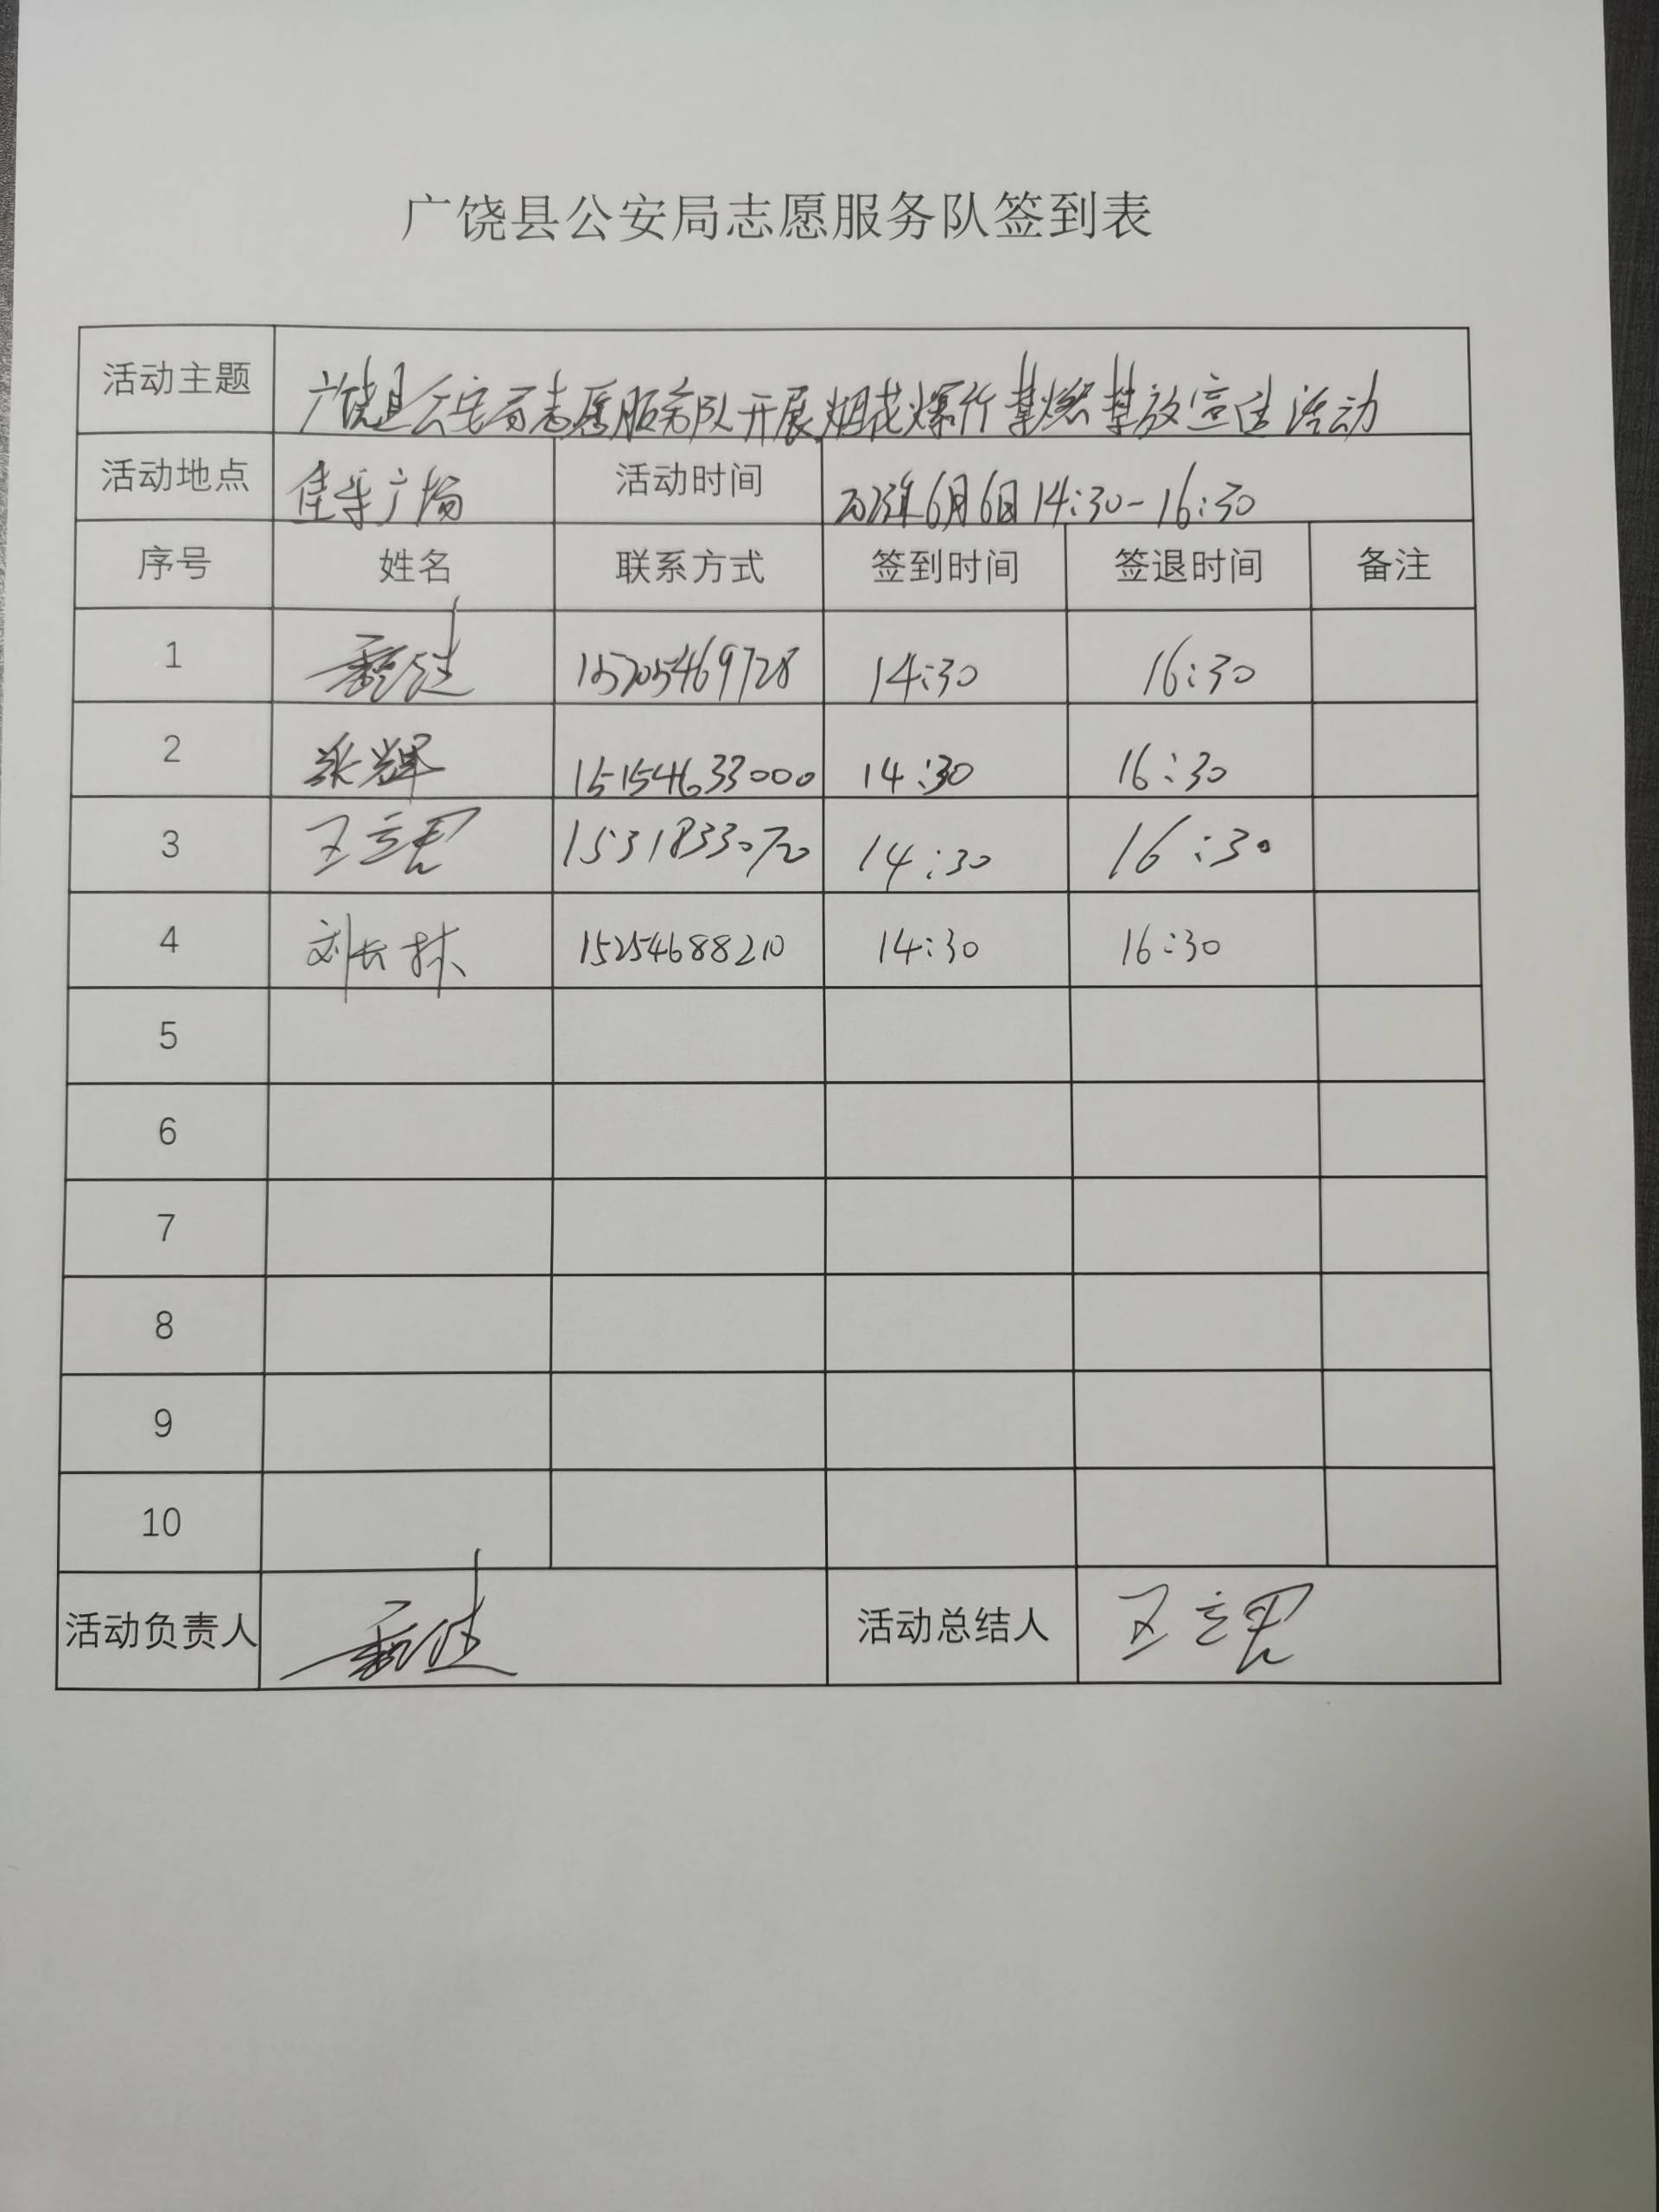 广饶县公安局志愿服务队签到表
活动主题 广饶县公安局志愿服务队开展烟花爆竹禁燃禁放宣传活动
活动地点 佳乐广场 活动时间 2023年6月6日14:30-16:30
序号 姓名 联系方式 签到时间 签退时间 备注
1 15705469728 14:30 16:30
2 张辉 15154633000 14:30 16:30
3 王立君 15318333070 14:30 16:30
4 刘长林 15254688210 14:30 16:30
5
6
7
8
9
10
活动负责人 活动总结人 王立君